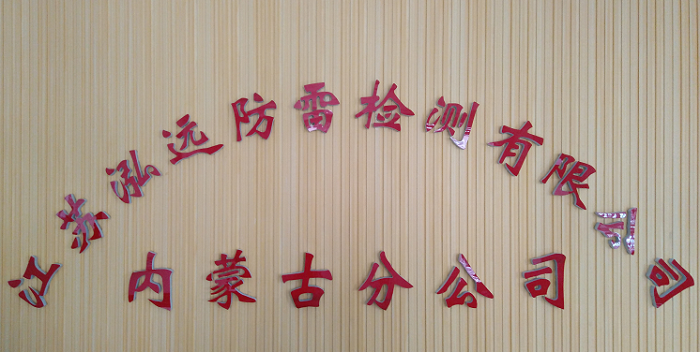 江苏泓远防雷检测有限公司
内蒙古分公司